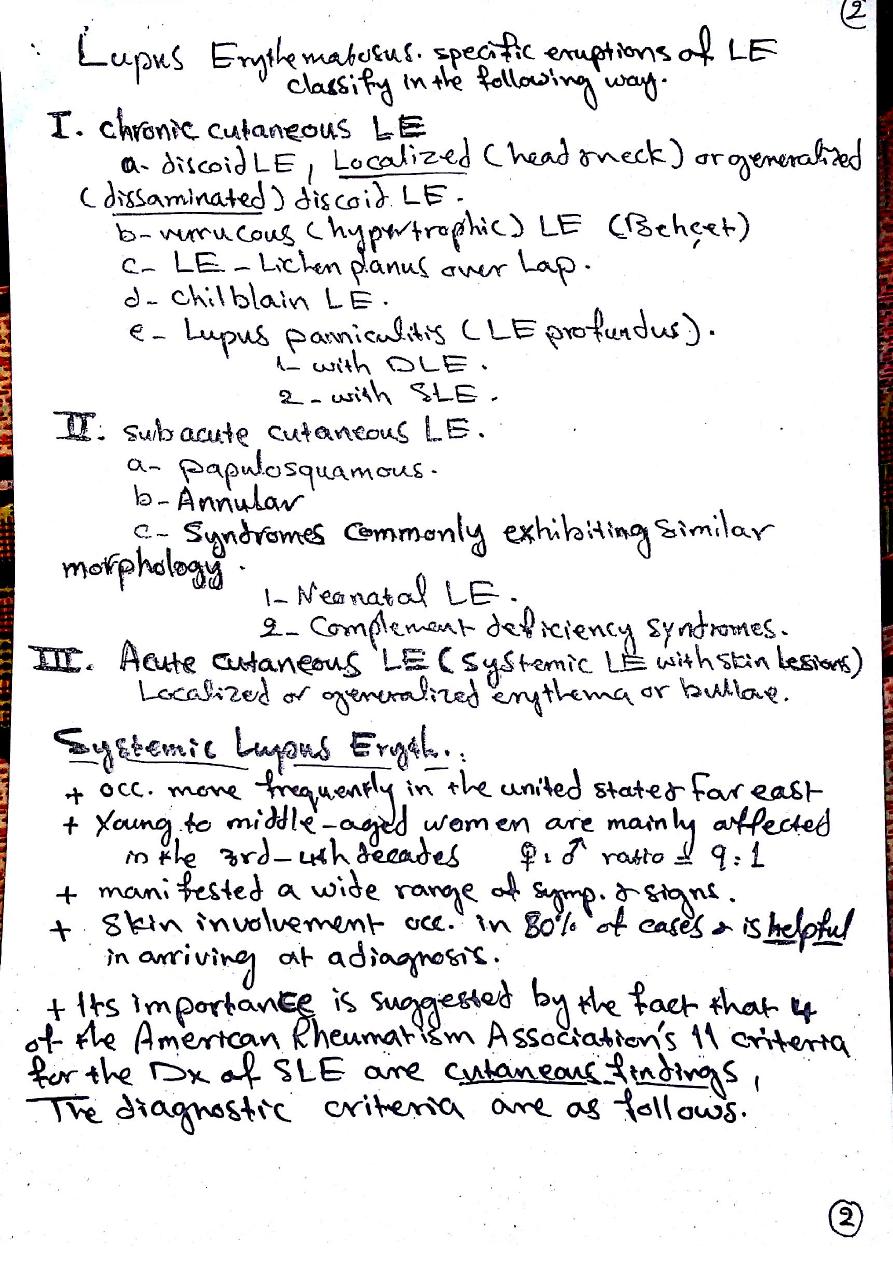 2
Lupus Erythematosus. specific eruptions of LE
classify in the following way.
I. chronic cutaneous LE
a- discoid LE, Localized (head & neck) or generalized
(dissaminated) discoid LE.
b- verrucous (hypertrophic) LE (Behçet)
c- LE - Lichen planus over Lap.
d- chilblain LE.
e- Lupus panniculitis (LE profundus).
1- with DLE.
2- with SLE.
II. subacute cutaneous LE.
a- papulosquamous.
b- Annular
c- Syndromes commonly exhibiting similar
morphology.
1- Neonatal LE.
2- Complement deficiency syndromes.
III. Acute cutaneous LE (systemic LE with skin Lesions)
Localized or generalized erythema or bullae.
Systemic Lupus Eryth.:
+ occ. more frequently in the united states & far east
+ Young to middle-aged women are mainly affected
in the 3rd-4th decades ♀:♂ ratio 9:1
+ manifested a wide range of symp. & signs.
+ Skin involvement occ. in 80% of cases & is helpful
in arriving at a diagnosis.
+ Its importance is suggested by the fact that 4
of the American Rheumatism Association's 11 criteria
for the Dx of SLE are cutaneous findings,
The diagnostic criteria are as follows.
2